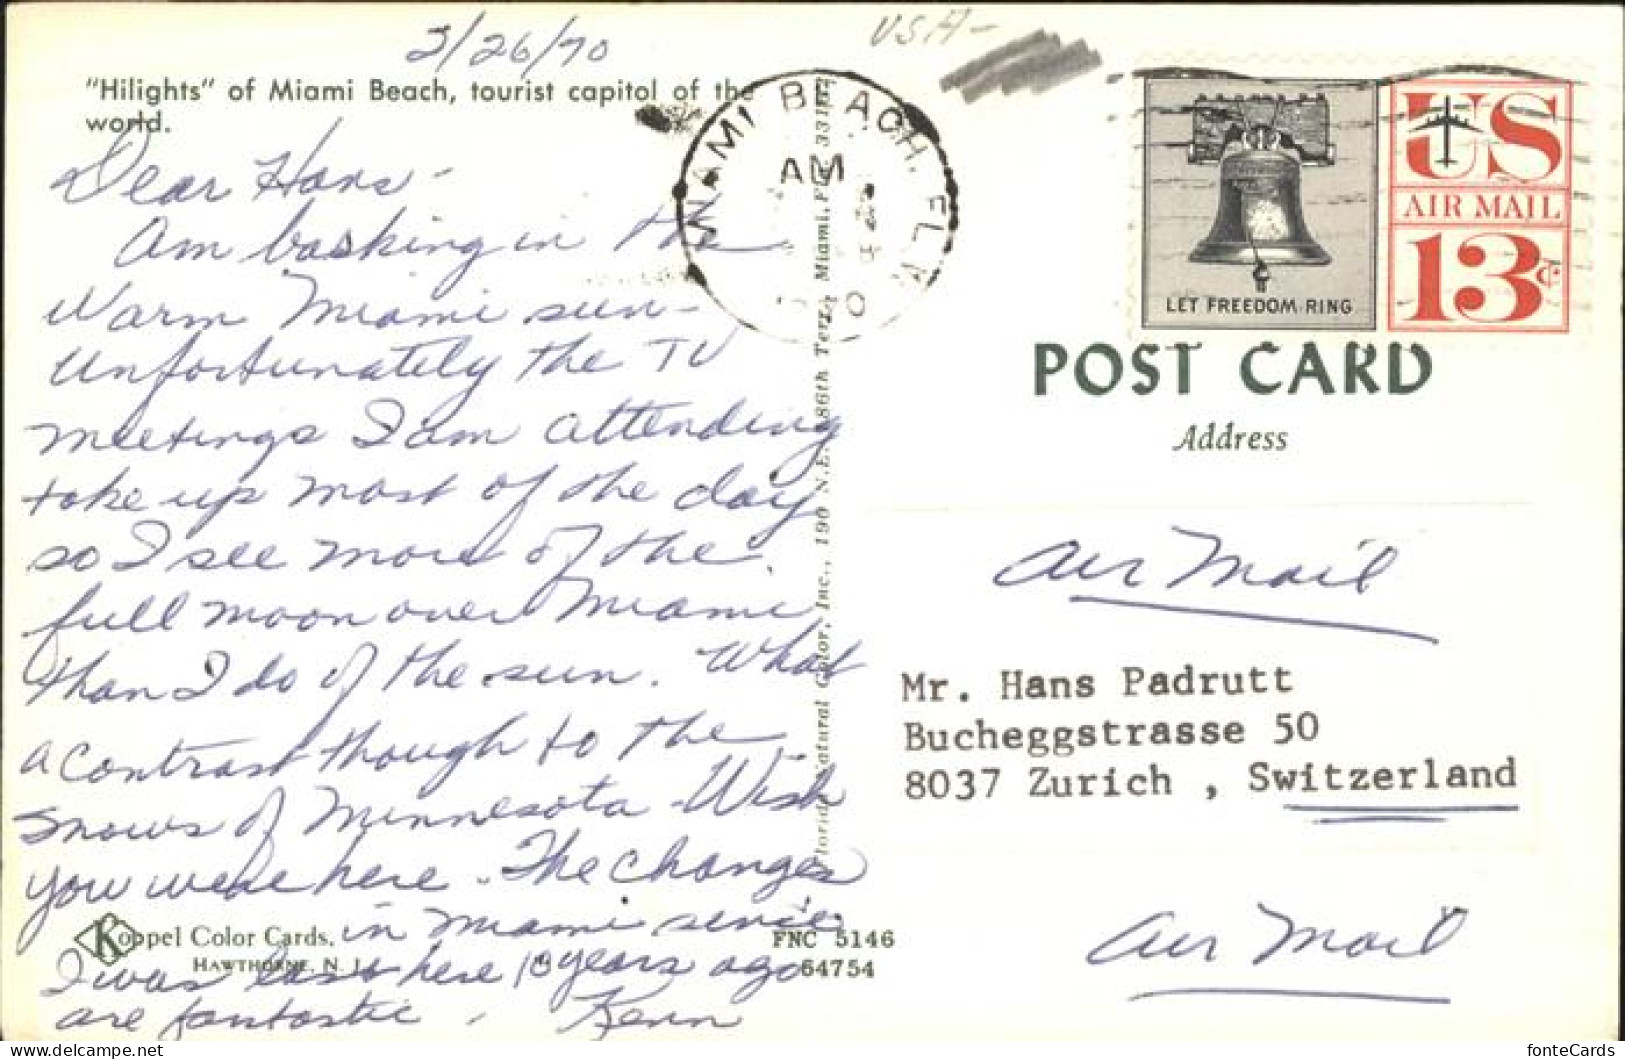 3/26/70
USA-
"Hilights" of Miami Beach, tourist capitol of the
world.
Dear Hans -
Am basking in the
warm Miami sun -
Unfortunately the TV
meetings I am attending
take up most of the day
so I see more of the
full moon over Miami
than I do of the sun. What
a contrast though to the
snows of Minnesota - Wish
you were here. The changes
in Miami since
I was last here 10 years ago
are fantastic.
Koppel Color Cards,
HAWTHORNE, N. J.
FNC 5146
64754
Florida Natural Color, Inc., 190 N.E. 86th Terr., Miami, Fla. 33138
MIAMI BEACH, FLA
AM
LET FREEDOM RING
US
AIR MAIL
13¢
POST CARD
Address
Air Mail
Mr. Hans Padrutt
Bucheggstrasse 50
8037 Zurich , Switzerland
Air Mail
fonteCards